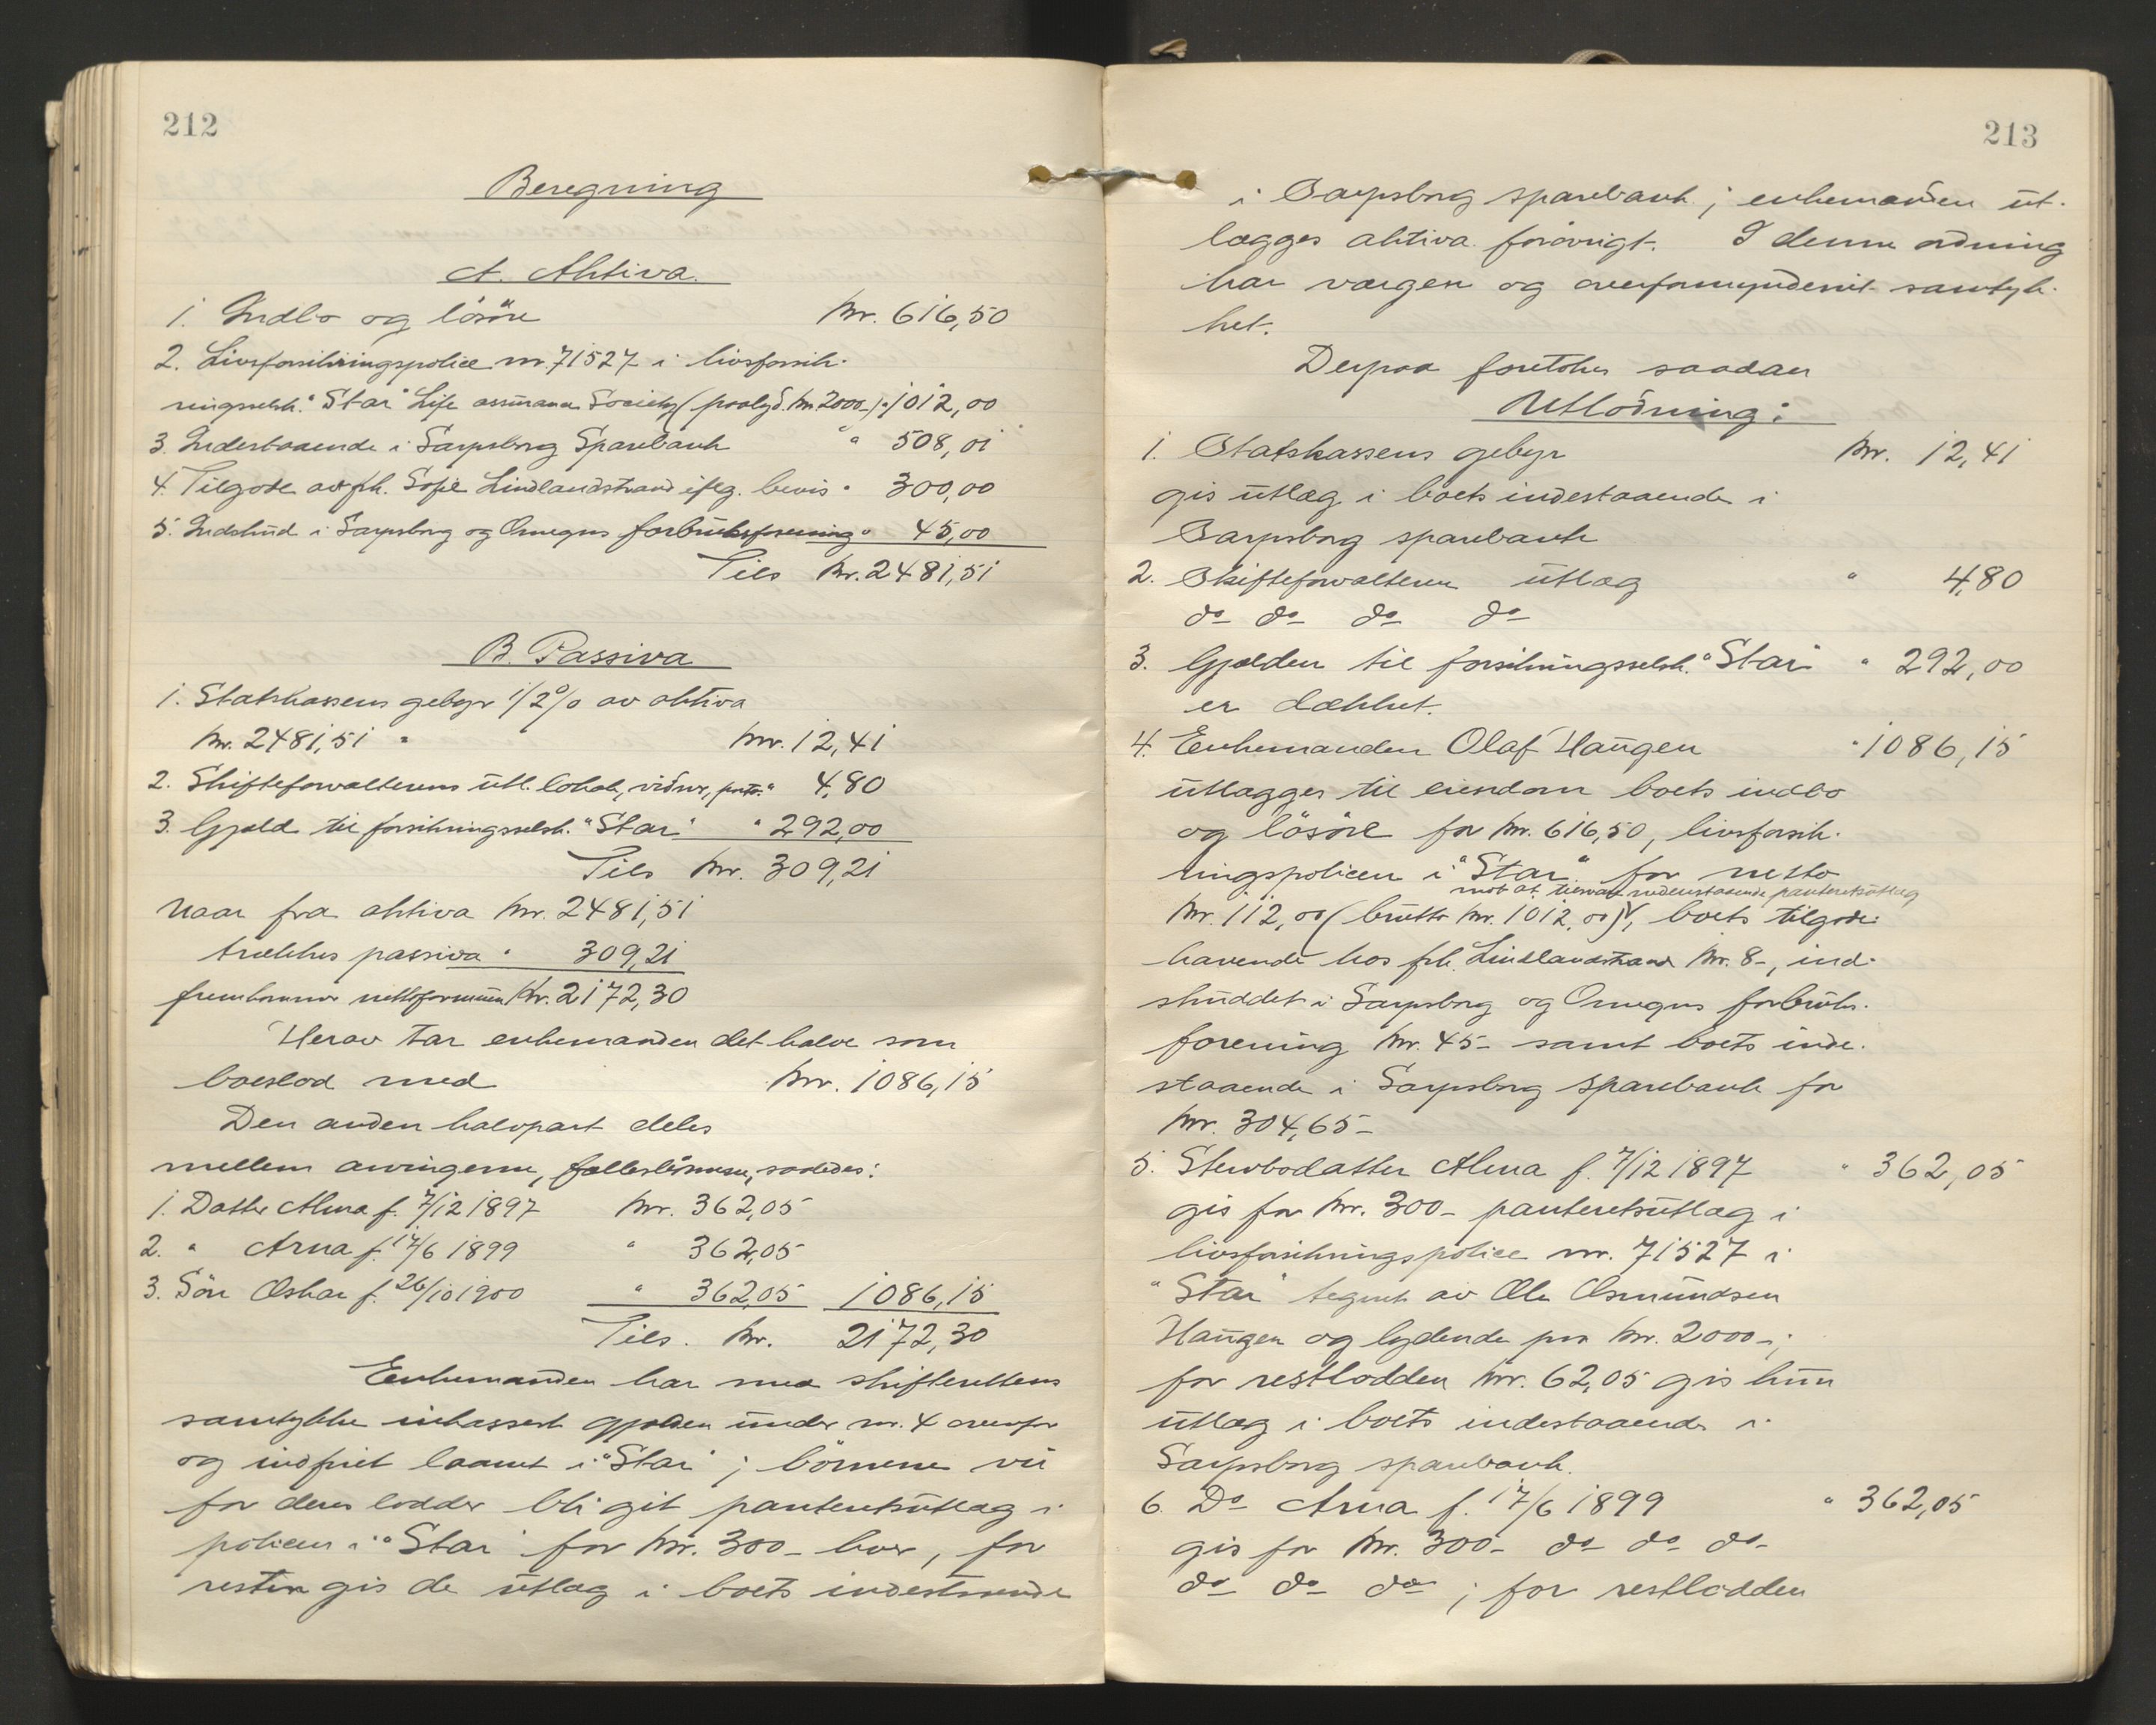 212
Beregning
A. Aktiva.
1. Indbo og løsøre kr. 616,50
2. Livsforsikringspolice nr. 71527 i livsforsik-
ringsselsk. "Star" Life assurance Society (paalyd. kr. 2000-) " 1012,00
3. Indestaaende i Sarpsborg Sparebank " 508,01
4. Tilgode av frk. Sofie Lindlandstrand iflg. bevis " 300,00
5. Indskud i Sarpsborg og Omegns forbruksforening " 45,00
Tils kr. 2481,51
B. Passiva
1. Statskassens gebyr 1/2 % av aktiva
kr. 2481,51 " kr. 12,41
2. Skifteforvalterens utl. lokale, vidner, porto " 4,80
3. Gjæld til forsikringsselsk. "Star" " 292,00
Tils kr. 309,21
Naar fra aktiva kr. 2481,51
trækkes passiva " 309,21
fremkommer nettoformuen kr. 2172,30
Herav tar enkemanden det halve som
boeslod med kr. 1086,15
Den anden halvpart deles
mellem arvingerne, fællesbørnene, saaledes:
1. Datter Alma f. 7/12 1897 kr. 362,05
2. " Arna f. 17/6 1899 " 362,05
3. Søn Oskar f. 26/10 1900 " 362,05 1086,15
Tils. kr. 2172,30
Enkemanden har med skifterettens
samtykke inkassert gjælden under nr. 4 ovenfor
og indfriet laanet i "Star"; børnene vil
for deres lodder bli git panteretsutlæg i
policen i "Star" for kr. 300- hver, for
resten gis de utlæg i boets indestaaende
213
i Sarpsborg sparebank; enkemanden ut-
lægges aktiva forøvrigt. I denne ordning
har værgen og overformynderiet samtyk-
ket.
Derpaa foretokes saadan
Utlodning:
1. Statskassens gebyr kr. 12,41
gis utlæg i boets indestaaende i
Sarpsborg sparebank
2. Skifteforvalteren utlæg " 4,80
do do do do
3. Gjælden til forsikringsselsk. "Star" " 292,00
er dækket.
4. Enkemanden Olaf Haugen " 1086,15
utlægges til eiendom boets indbo
og løsøre for kr. 616,50, livsforsik-
ringspolicen i "Star" for netto
mot at tilsvare nedenstaaende panteretsutlæg
kr. 112,00 (brutto kr. 1012,00), boets tilgode-
havende hos frk. Lindlandstrand kr. 8-, ind-
skuddet i Sarpsborg og Omegns forbruks-
forening kr. 45- samt boets inde-
staaende i Sarpsborg sparebank for
kr. 304,65-
5. Stervbodatter Alma f. 7/12 1897 " 362,05
gis for kr. 300- panteretsutlæg i
livsforsikringspolice nr. 71527 i
"Star" tegnet av Ole Osmundsen
Haugen og lydende paa kr. 2000-;
for restlodden kr. 62,05 gis hun
utlæg i boets indestaaende i
Sarpsborg sparebank.
6. Do Arna f. 17/6 1899 " 362,05
gis for kr. 300- do do do
do do do; for restlodden